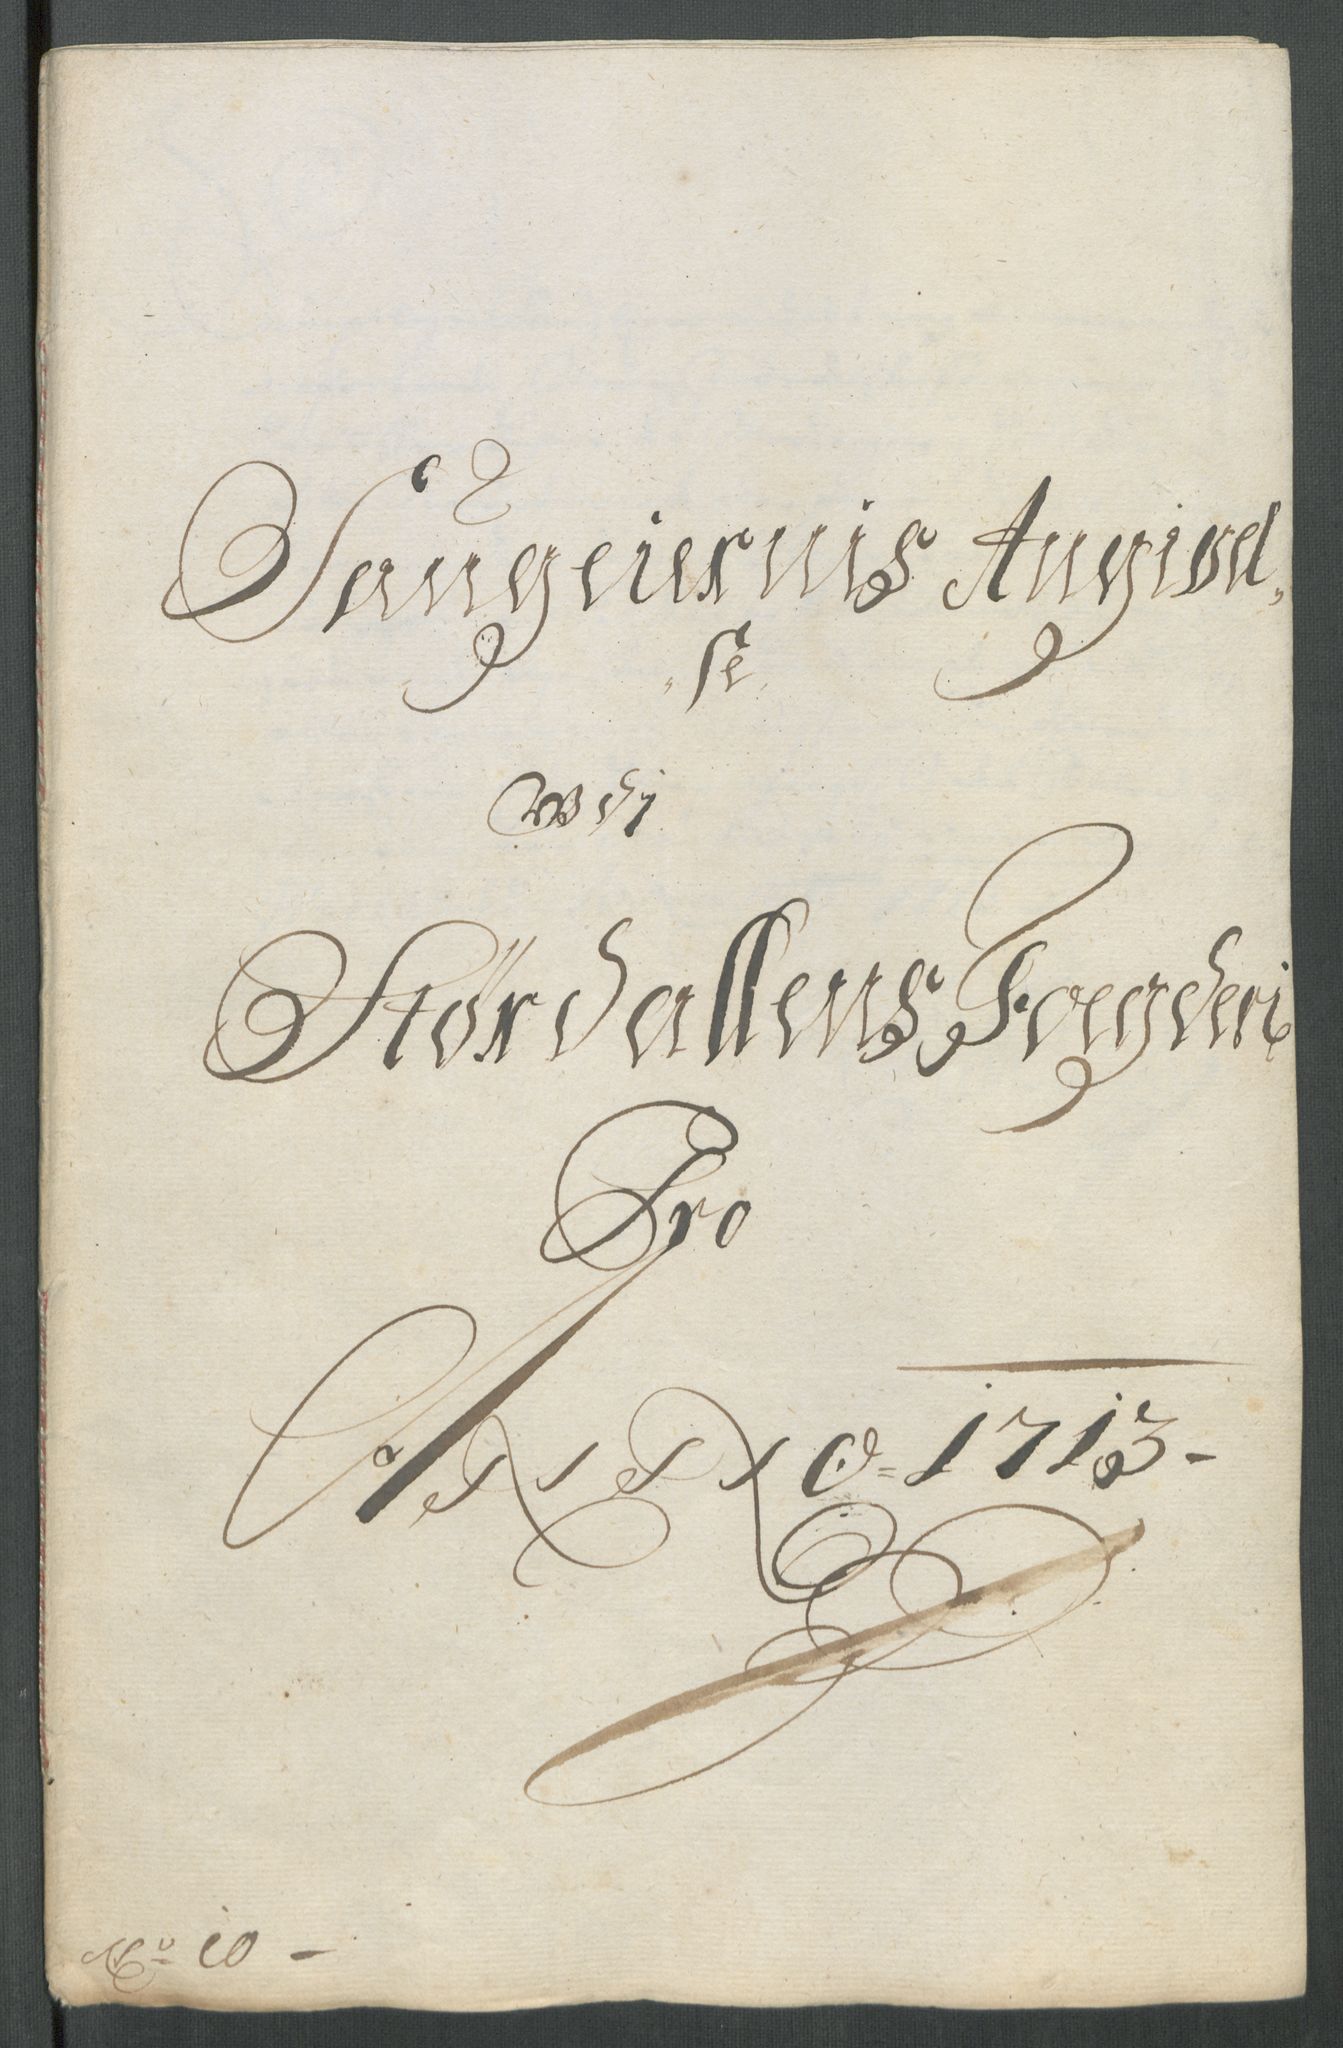 Saugeiernis Angivel„
„se„
Udj
Størdallens Fogderi
Pro
ANNO = 1713 -
No 10 -